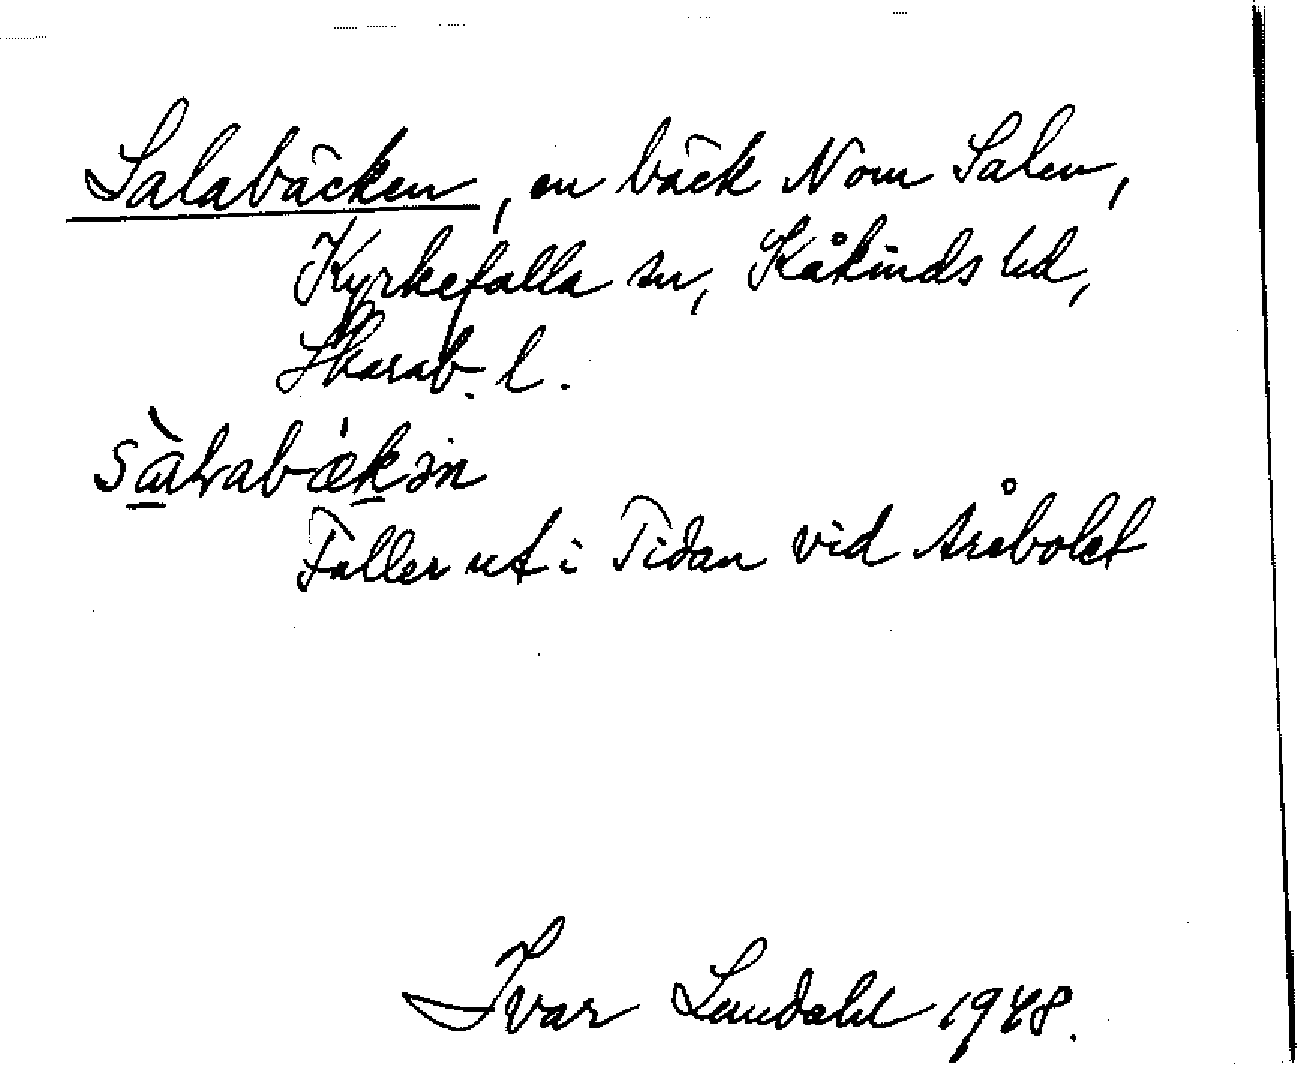 Salabäcken, en bäck N om Salen,
Kyrkefalla sn, Kåkinds hd,
Skarab. l.
Faller ut i Tidan vid Åsebolet
Ivar Lundahl 1948.